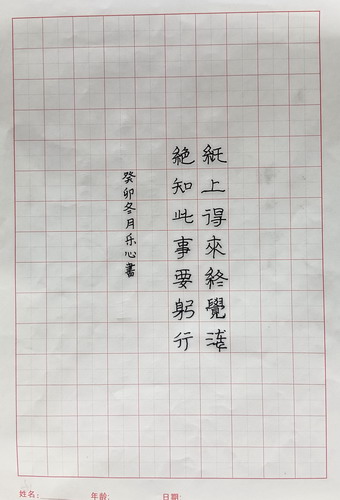 紙上得來終覺淺
絶知此事要躬行
癸卯冬月乐心書
姓名: 年龄: 日期: